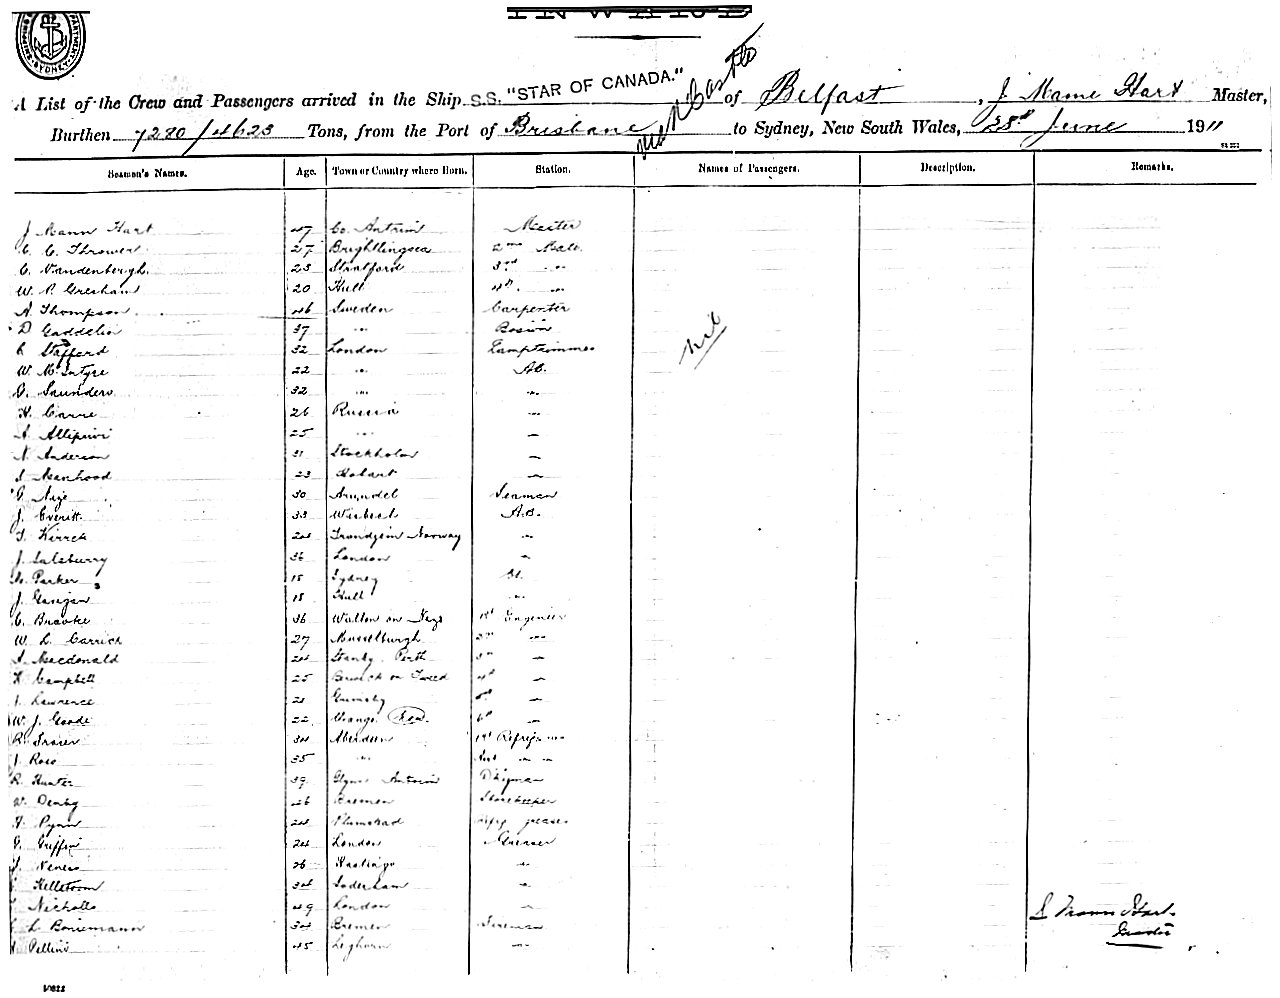 INWARD
SYDNEY
A List of the Crew and Passengers arrived in the Ship S.S. "STAR OF CANADA." of Belfast, J Mann Hart Master,
Burthen 7280/4623 Tons, from the Port of Brisbane via NCastle to Sydney, New South Wales, 28th June 1911
Seamen's Names. Age. Town or Country where Born. Station. Names of Passengers. Description. Remarks.
J Mann Hart 47 Co. Antrim Master
C. C. Thrower 27 Brightlingsea 2nd Mate
C. Vandenbergh 23 Stratford 3rd "
W. P. Gresham 20 Hull 4th "
A Thompson 46 Sweden Carpenter
D 37 " Bosun
Stafford 32 London Lamptrimmer
W. McIntyre 22 " AB.
G. Saunders 32 " "
H. Carre 26 Russia "
A 25 " "
N. Anderson 31 Stockholm "
S. Manhood 23 Hobart "
G. 30 Arundel Seaman
J. Everitt 33 Wisbech A.B.
24 Trondgem Norway "
J. Salsburry 36 London "
Parker 18 Sydney
J. 18 Hull "
C. 36 Walton on Naze 1st Engineer
W. L. Carrick 27 Musselburgh 2nd "
A. Macdonald 24 Stanly. Perth 3rd "
H. Campbell 25 Berwick on Tweed 4th "
J. Lawrence 21 Grimsby 5th "
W. J. Goode 22 6th "
R. Fraser 34 Aberdeen 1st
J. Ross 35 " "
R. Hunter 39 Antrim
W. Denby 26 Bremen Storekeeper
Pynn 24 Plumstead greaser
G. Griffin 24 London Greaser
J. 26 Hastings "
Hellstrom 34 Soderham "
Nicholls 49 London "
L. Bornemann 34 Bremen Fireman
Pellini 45 Leghorn "
nil
J Mann Hart
Master